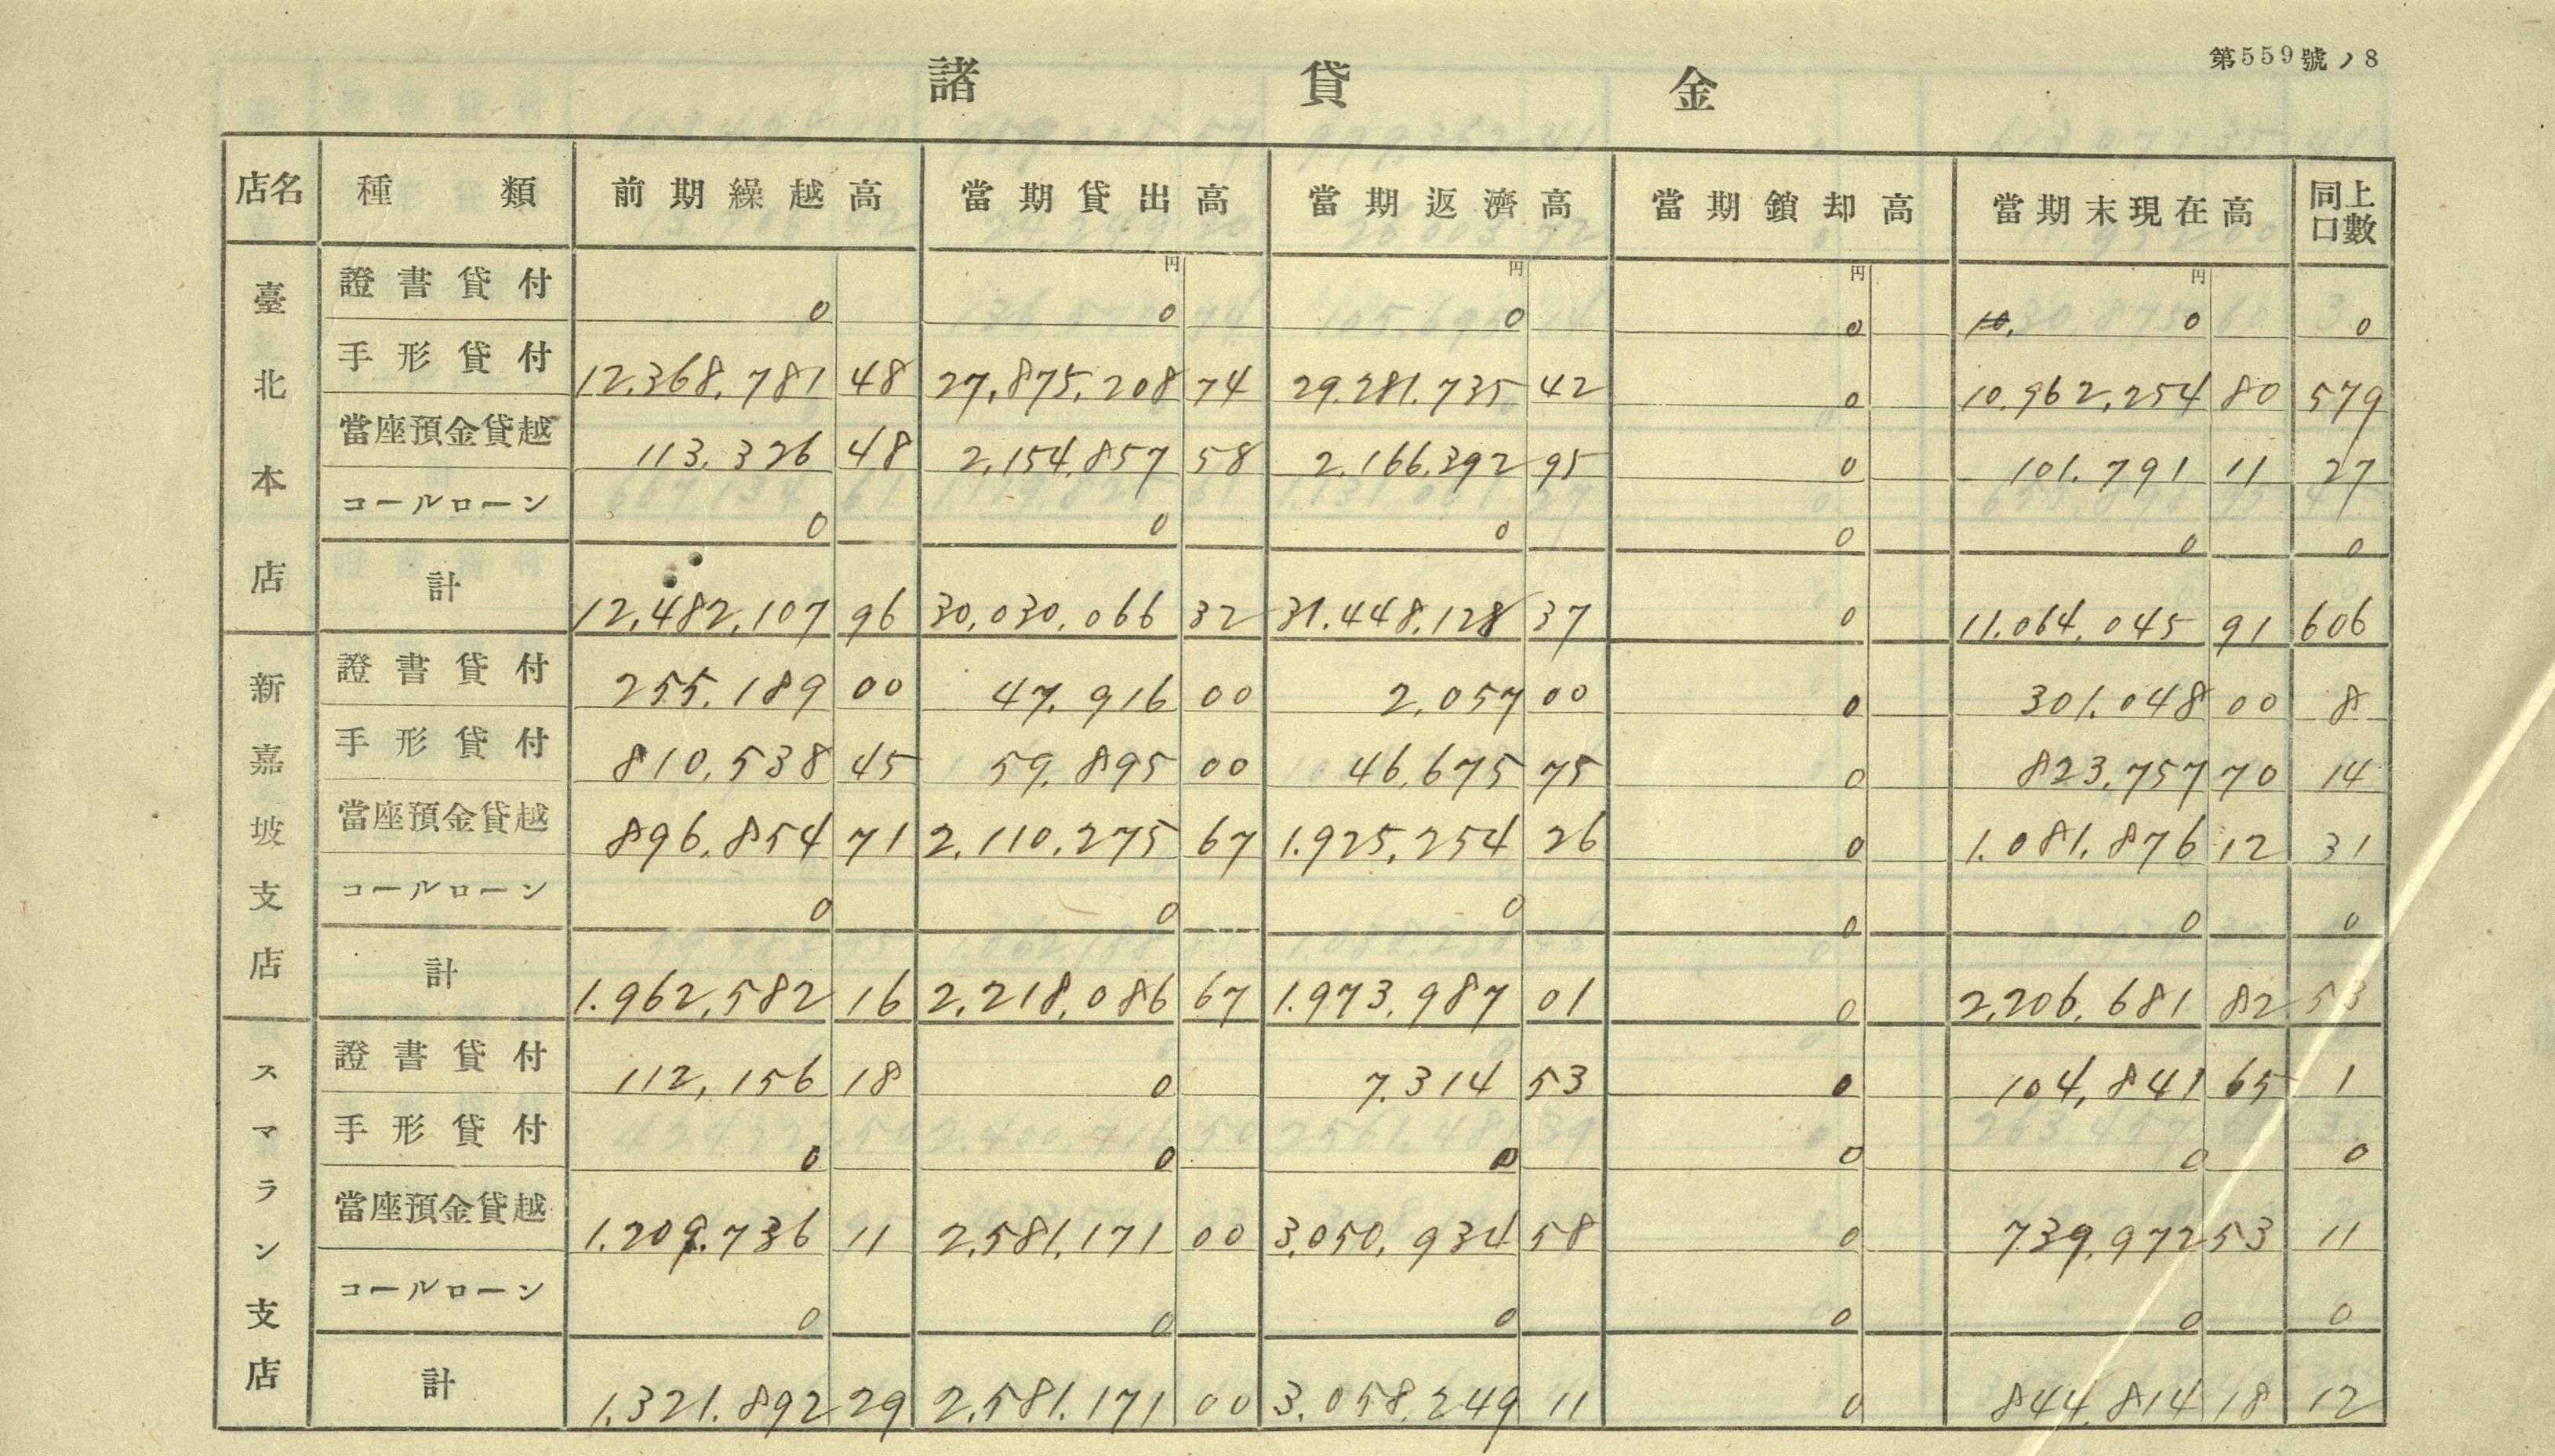 第559號ノ8
諸貸金
店名 種類 前期繰越高 當期貸出高 當期返濟高 當期鎖却高 當期末現在高 同上口數
円 円 円 円
臺北本店
證書貸付 0 0 0 0 0 0
手形貸付 12,368,781 48 27,875,208 74 29,281,735 42 0 10,962,254 80 579
當座預金貸越 113,326 48 2,154,857 58 2,166,392 95 0 101,791 11 27
コールローン 0 0 0 0 0 0
計 12,482,107 96 30,030,066 32 31,448,128 37 0 11,064,045 91 606
新嘉坡支店
證書貸付 255,189 00 47,916 00 2,057 00 0 301,048 00 8
手形貸付 810,538 45 59,895 00 46,675 75 0 823,757 70 14
當座預金貸越 896,854 71 2,110,275 67 1,925,254 26 0 1,081,876 12 31
コールローン 0 0 0 0 0 0
計 1,962,582 16 2,218,086 67 1,973,987 01 0 2,206,681 82 53
スマラン支店
證書貸付 112,156 18 0 7,314 53 0 104,841 65 1
手形貸付 0 0 0 0 0 0
當座預金貸越 1,209,736 11 2,581,171 00 3,050,934 58 0 739,972 53 11
コールローン 0 0 0 0 0 0
計 1,321,892 29 2,581,171 00 3,058,249 11 0 844,814 18 12